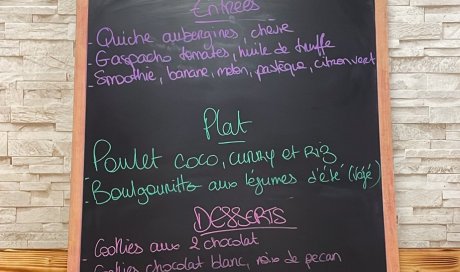 Entrées
- Quiche aubergines, chèvre
- Gaspacho tomates, huile de truffe
- Smoothie, banane, melon, pastèque, citron vert
Plat
- Poulet coco, curry et riz
- Boulgounitto aux légumes d'été (végé)
DESSERTS
- Cookies aux 2 chocolat
- Cookies chocolat blanc, noix de pecan